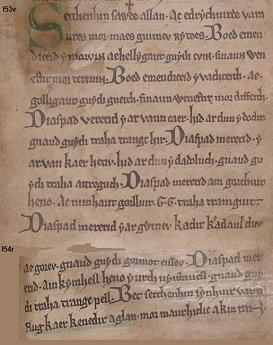 f53v
Seithenhin sawde allan. ac edrychuirde varan
res mor. maes guitnev rytoes. Boed emen
diceid y morvin aehellygaut guydi cvin. finaun wen
estir mor terruin. Boed emendiceid y vachteith. ae.
golligaut guydi gueith. finaun wenestir mor diffeith.
Diaspad vererid y ar vann caer. hid ar duu y dodir.
gnaud guydi traha trangc hir. Diaspad mererid. y
ar van kaer hetiv. hid ar duu y dadoluch. gnaud gu
ydi traha attreguch. Diaspad mererid am gorchuit
heno. ac nimhaut gorlluit. G. G. traha tramguit.
Diaspad mererid y ar gwinev kadir kedaul duv
f54r
ae gorev. gnaud guydi gormot eissev. Diaspad mer
erid. am kymhell heno y urth uyistauell. gnaud guy
di traha trangc pell. Bet seithenhin synhuir vann
Rug kaer kenedir a glan. mor maurhidic a kinran.